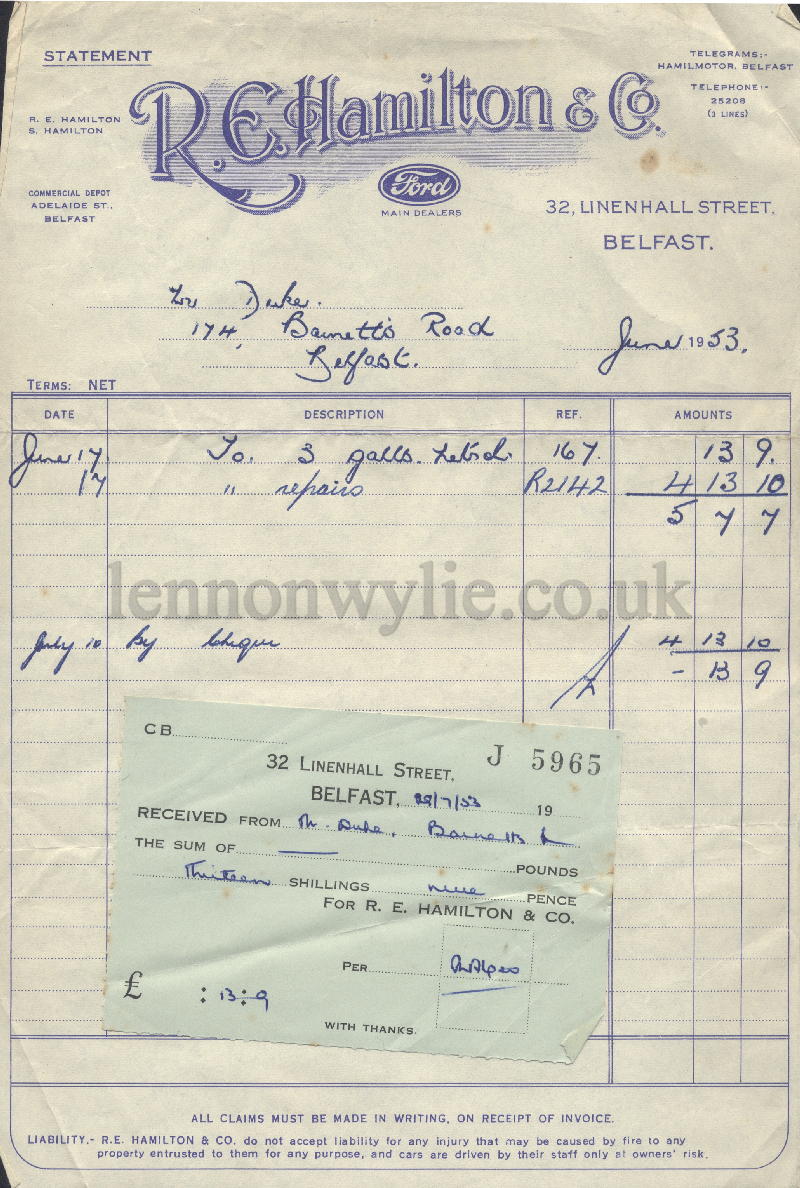 STATEMENT
TELEGRAMS:-
HAMILMOTOR, BELFAST
TELEPHONE:-
25208
(3 LINES)
R. E. Hamilton & Co.
R. E. HAMILTON
S. HAMILTON
Ford
MAIN DEALERS
COMMERCIAL DEPOT
ADELAIDE ST.,
BELFAST
32, LINENHALL STREET,
BELFAST.
Duke.
174, Barnett's Road
Belfast.
June 1953.
TERMS: NET
DATE DESCRIPTION REF. AMOUNTS
June 17. To. 3 galls. 167. 13 9.
17 " repairs R2142 4 13 10
5 7 7
lennonwylie.co.uk
July 10 By Cheque 4 13 10
- 13 9
CB
J 5965
32 LINENHALL STREET,
BELFAST, /7/53 19
RECEIVED FROM Mr. Duke, Barnetts
THE SUM OF POUNDS
Thirteen SHILLINGS nine PENCE
FOR R. E. HAMILTON & CO.
PER
£ : 13 : 9
WITH THANKS.
ALL CLAIMS MUST BE MADE IN WRITING, ON RECEIPT OF INVOICE.
LIABILITY.- R.E. HAMILTON & CO. do not accept liability for any injury that may be caused by fire to any
property entrusted to them for any purpose, and cars are driven by their staff only at owners' risk.